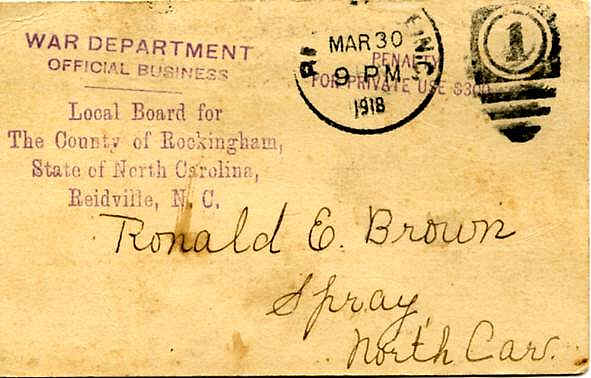 WAR DEPARTMENT
OFFICIAL BUSINESS
Local Board for
The County of Rockingham,
State of North Carolina,
Reidville, N. C.
MAR 30
9 PM
1918
N.C.
1
PENALTY
FOR PRIVATE USE $300
Ronald E. Brown
Spray,
North Car.